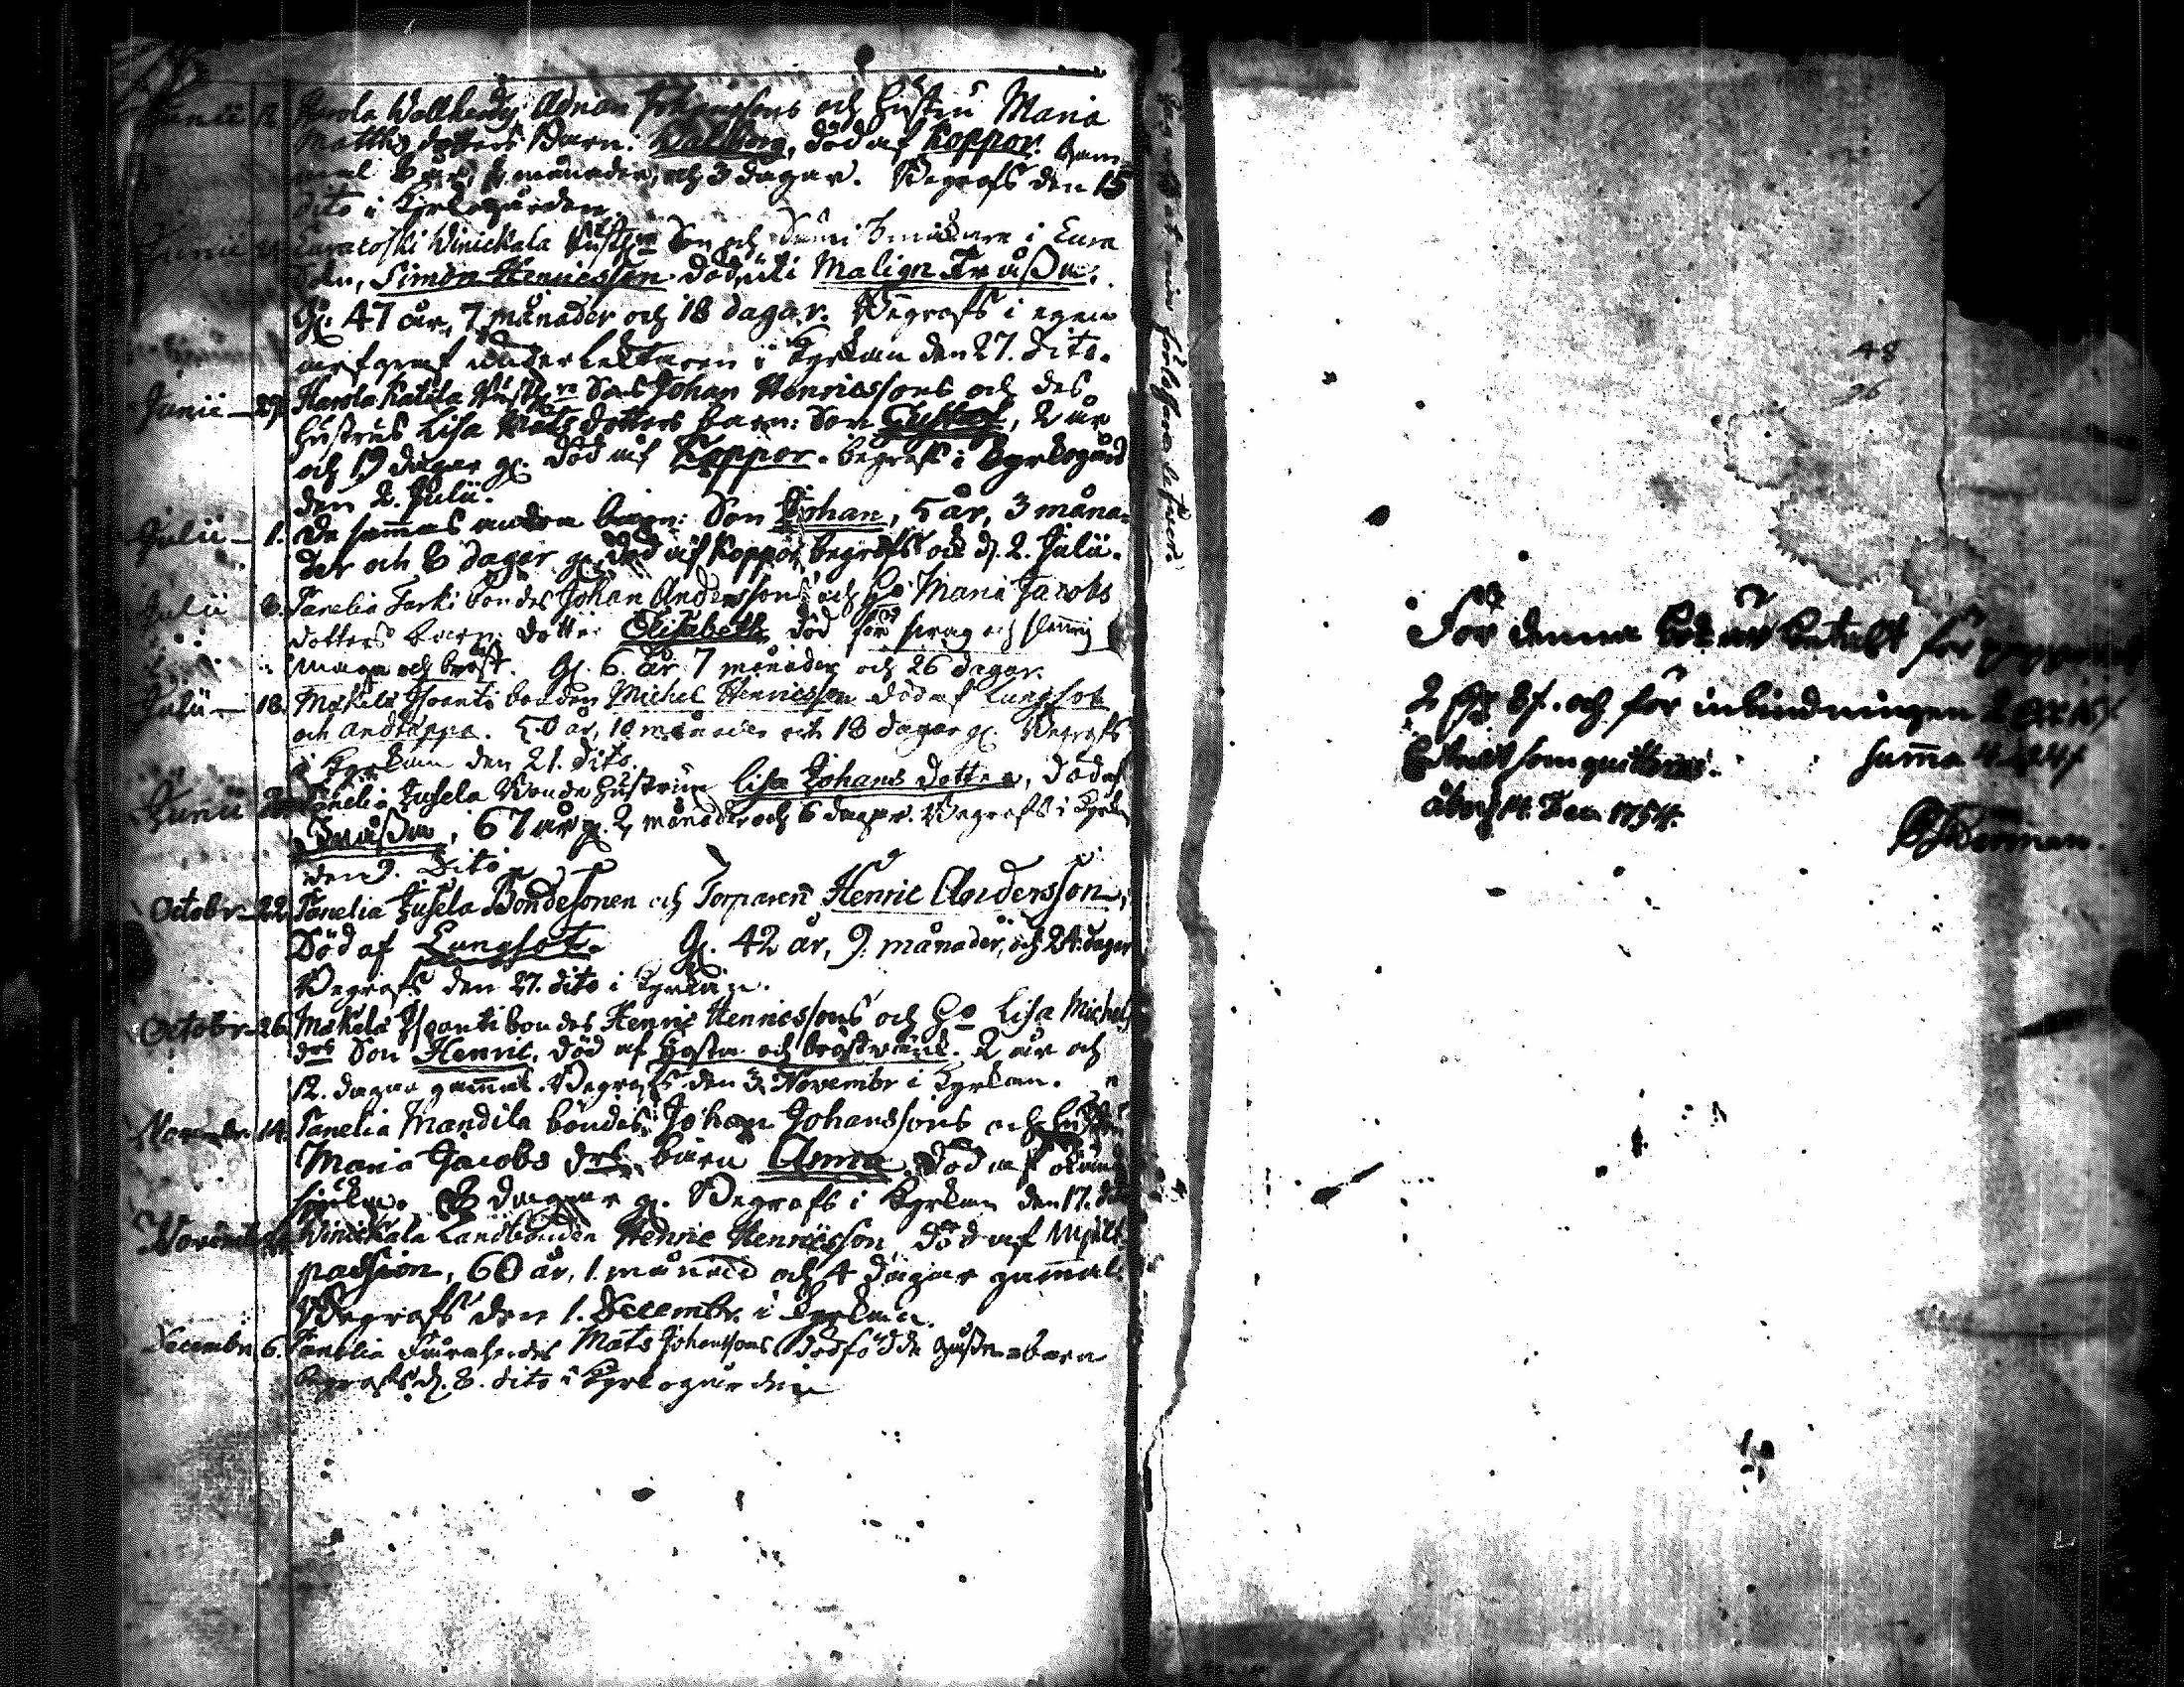 Junii 12. Harola Wallhendz Adrian Johanssons och hustru Maria
Matths dotters Barn: Walborg, död af Koppor. Gam-
mal 8 år, månader, och 3 dagar. Begrofs den 15
dito i Kyrkogården.
Junii Euracoski Winickala Rusth. Son och i Eura
Simon Henricsson död uti Malign Fråßa.
Gl. 47 år, 7 månader och 18 dagar. Begrofs i egen
arfgraf under Lecktaren i Kyrkan den 27. dito.
Junii 29. Harola Katila Rusth. Sons Johan Henricssons och des
hustrus Lisa Mats dotters barn: Son Gustaf, 2 år
och 19 dagar gl. död af Koppor. begrofs i Kyrkogård
den 2. Julii.
Julii 1. De sammas andra barn: Son Johan, 5 år, 3 måna-
der och 8 dagar gl. död af Koppor begrofs ock d. 2. Julii.
Julii 8. Tanelia Jarki bondes Johan Anderssons och Ho Maria Jacobs
dotters barn: dotter Elisabeth död och
maga och bröst. Gl. 6 år 7 månader och 26 dagar.
Julii 18. Mäkelä bonden Michel Henricsson död af Lungsot
och andtäppa. 50 år, 10 månader och 18 dagar gl. Begrofs
i Kyrkan den 21. dito.
Junii Tanelia Jusela Bonde hustrun Lisa Johans dotter, död af
Fråßa, 67 år gl. 2 månader och 6 dagar. Begrofs i Kyrkan
den 9. Dito
Octobr. 22. Tanelia Jusela Bondesonen och Torparen Henric Andersson,
Död af Lungsot. Gl. 42 år, 9. månader, och 24. dagar
Begrofs den 27. dito i Kyrkan.
Octobr. 26. Mäkelä bondes Henric Henricssons och Ho Lisa Michels
drs Son Henric, död af hosta och bröstvärk. 2 år och
12. dagar gammal. Begrofs den 3. Novembr i Kyrkan.
Novembr. 14. Tanelia Mandila bondes Johan Johanssons och hustru
Maria Jacobs drs barn Anna. död af okänd
siukdom. 8 dagar gl. Begrofs i Kyrkan den 17. dito
Novembr. Winickala Landbonden Henric Henricsson död af Mjält-
passion, 60 år, 1. månad och 4 dagar gammal.
Begrofs den 1. Decembr. i Kyrkan.
Decembr. 6. Tanelia Mats Johanssons dödfödde barn
Begrofs d. 8. dito i Kyrkogården
48
26
För denna bok är betalt för
2 och för inbindningen 2
som quitteras. Summa 4
Åbo d. 14. Jan 1754.